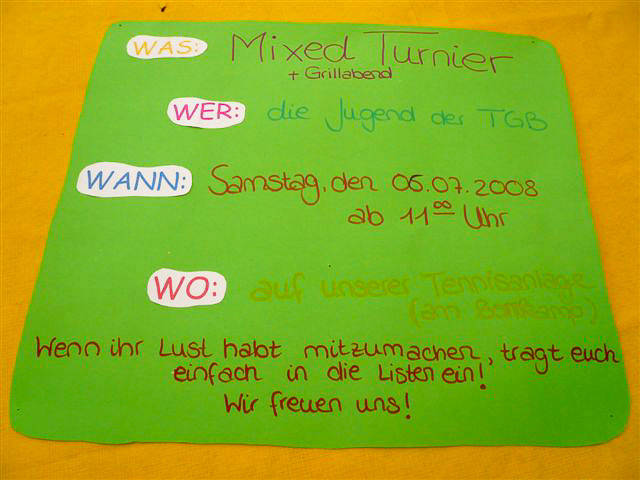 WAS: Mixed Turnier
+ Grillabend
WER: die Jugend der TGB
WANN: Samstag, den 06.07.2008
ab 11⁰⁰ Uhr
WO: auf unserer Tennisanlage
(am Bonkamp)
Wenn ihr Lust habt mitzumachen, tragt euch
einfach in die Listen ein!
Wir freuen uns!